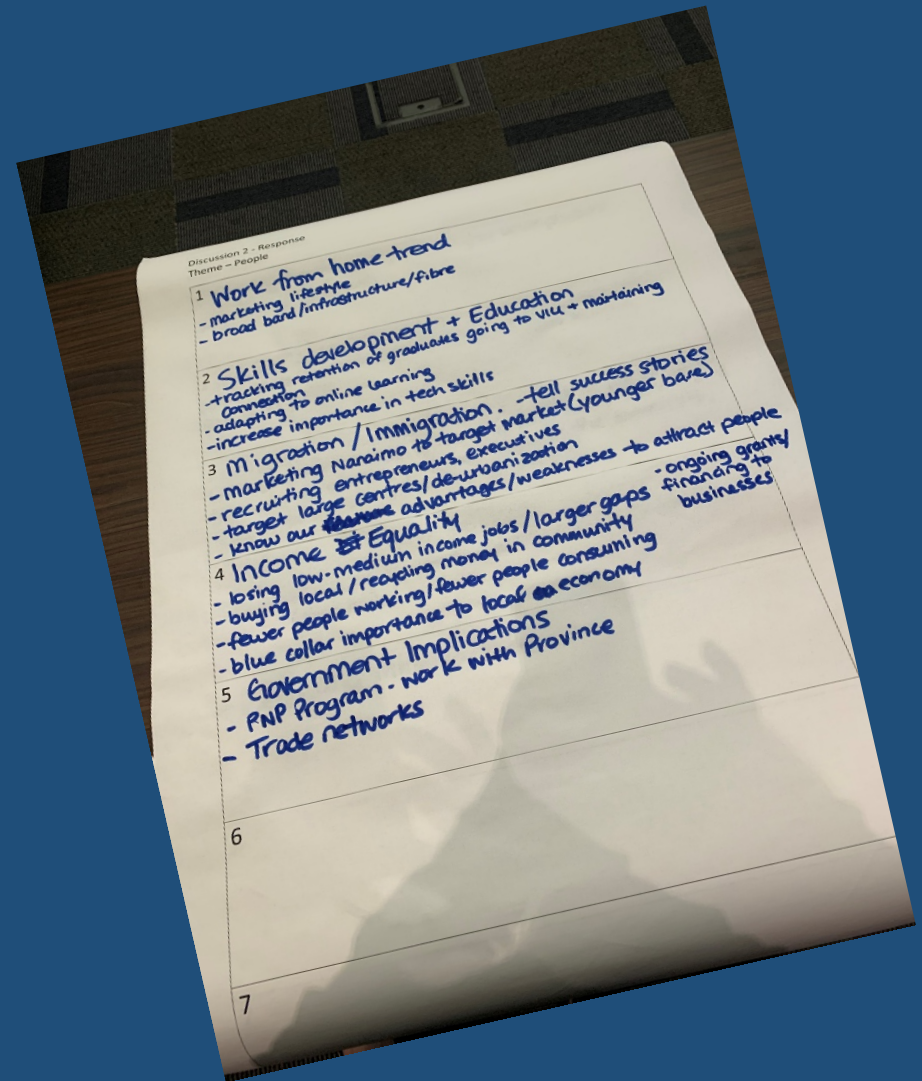 Discussion 2 - Response
Theme – People
1 Work from home trend
- marketing lifestyle
- broad band/infrastructure/fibre
2 Skills development + Education
-tracking retention of graduates going to VIU + maintaining
connection
- adapting to online learning
-increase importance in tech skills
3 Migration / Immigration. -tell success stories
- marketing Nanaimo to target market (younger base)
- recruiting entrepreneurs, executives
- target large centres/de-urbanization
- know our advantages/weaknesses to attract people
4 Income Equality
- losing low-medium income jobs/larger gaps
- buying local/recycling money in community
-fewer people working/fewer people consuming
- blue collar importance to local economy
- ongoing grants/
financing to
businesses
5 Government Implications
- PNP Program - work with Province
- Trade networks
6
7